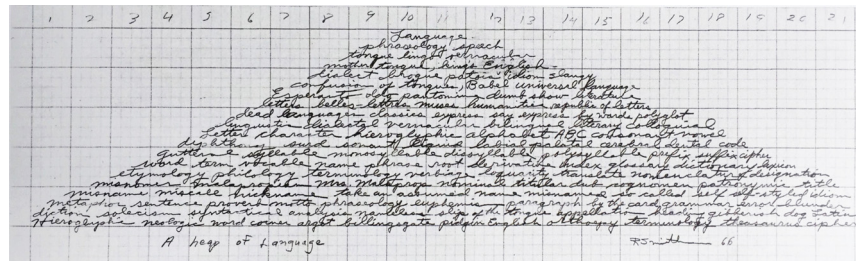 1 2 3 4 5 6 7 8 9 10 11 12 13 14 15 16 17 18 19 20 21
Language
phraseology speech
tongue lingo vernacular
mother tongue, king's English
dialect brogue patois idiom slang
confusion of tongues, Babel universal language
Esperanto pantomime dumb show literature
letters belles-lettres muses humanities republic of letters
dead languages classics express say express by words polyglot
linguistic dialectal vernacular bilingual literary colloquial
letters character hieroglyphic alphabet ABC consonant vowel
diphthong surd sonant liquid labial palatal cerebral dental code
guttural syllable monosyllable dissyllable polysyllable prefix suffix cipher
word term vocable name phrase root derivative index glossary dictionary lexicon
etymology philology terminology verbiage loquacity translate nomenclature designation
misnomer malapropism Mrs. Malaprop nominal titular cognomen patronymic title
misname miscall nickname take an assumed name unnamed so called self styled
metaphor sentence proverb motto phraseology euphemism paragraph by the card grammar error blunder
diction solecism syntactical analysis nameless slip of the tongue appellation heading gibberish dog Latin
Hieroglyphic neologic word coiner argot billingsgate pidgin English orthoepy terminology thesaurus cipher
A heap of Language
R. Smithson 66